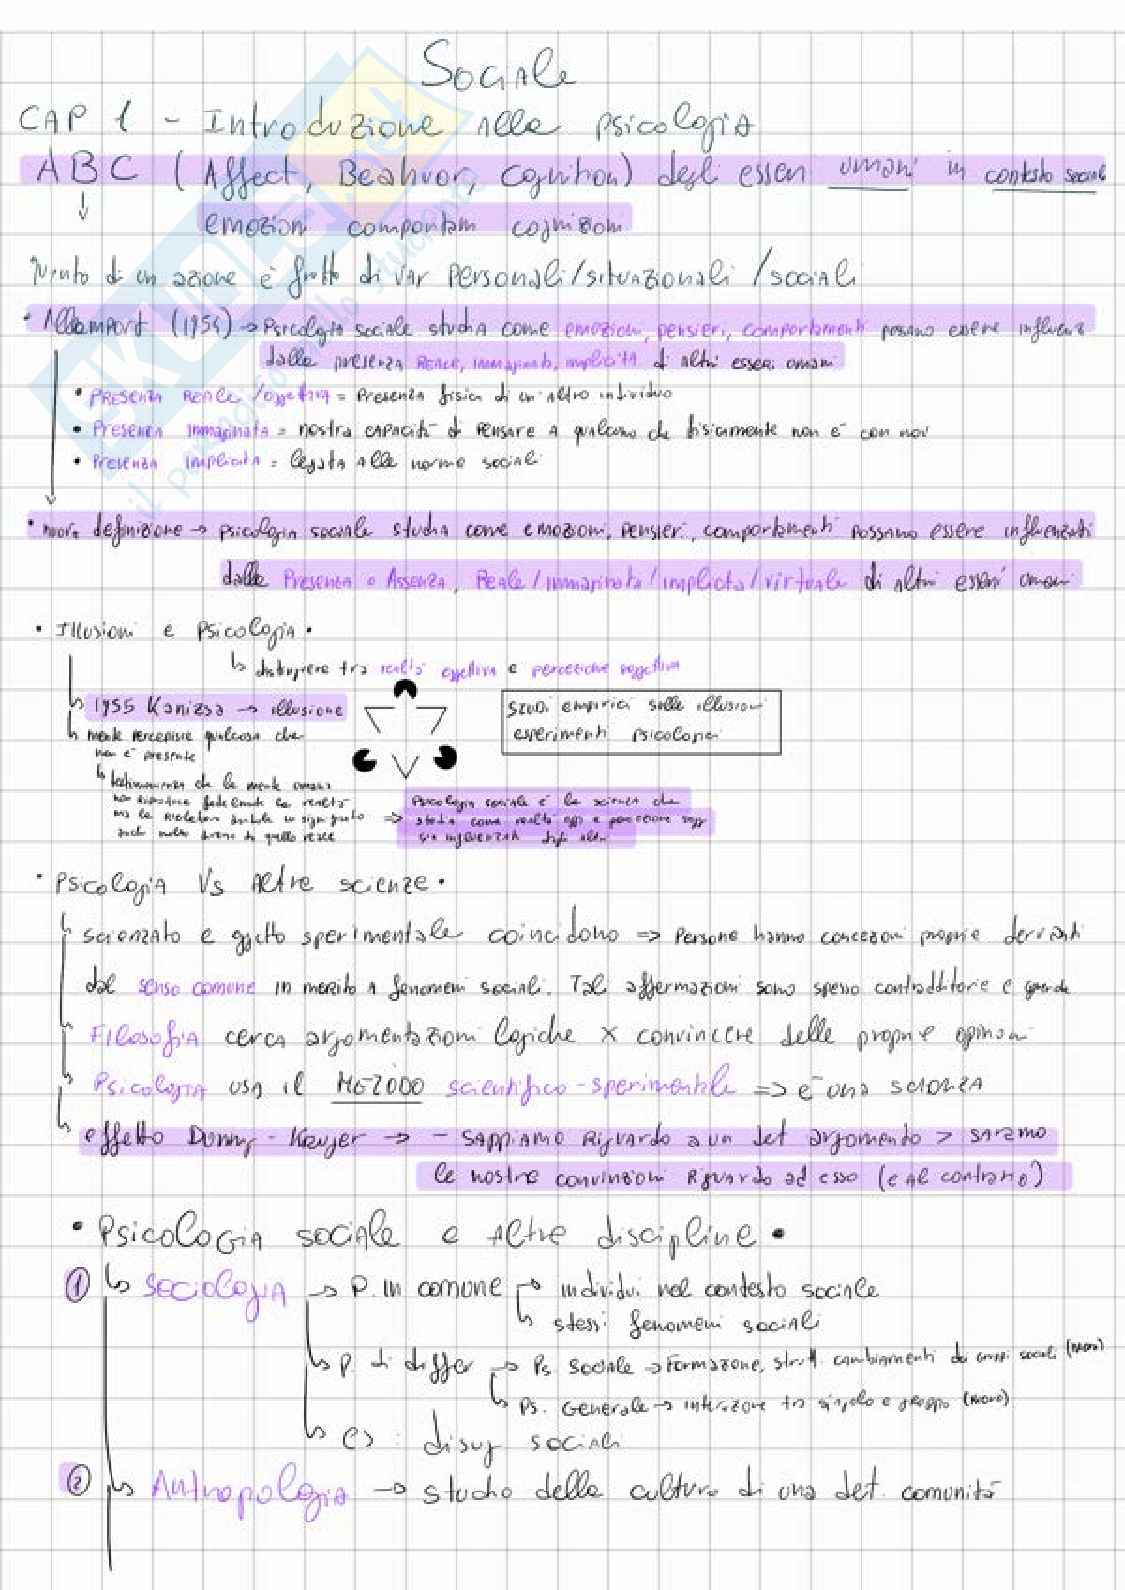 Sociale
CAP 1 - Introduzione alla psicologia
ABC (Affect, Beahvor, Cognition) degli esseri umani in contesto sociale
↓ emozioni comportam cognizioni
di un azione è frutto di var personali/situazionali/sociali
• (1954) → Psicologia sociale studia come emozioni, pensieri, comportamenti possano essere influenz
dalla presenza REALE, immaginata, implicita di altri esseri umani
• PRESENZA REALE/oggettiva = Presenza fisica di un altro individuo
• Presenza immaginata = nostra CAPACità di PENSARE A qualcuno che fisicamente non è con noi
• Presenza implicita = legata alle norme sociali
• nuova definizione → psicologia sociale studia come emozioni, pensieri, comportamenti possano essere influenzati
dalla Presenza o Assenza, Reale/immaginata/implicita/virtuale di altri esseri umani
• Illusioni e psicologia •
↳ distinguere tra realtà oggettiva e percezione soggettiva
↳ 1955 Kanizsa → illusione
↳ mente percepisce qualcosa che
non è presente
↳ testimonianza che la mente umana
non riproduce fedelmente la realtà
ma la
molto diverso da quello reale
Studi empirici sulle illusioni
esperimenti psicologici
⇒ Psicologia sociale è la scienza che
studia come realtà ogg e percezione sogg
sia influenzata dagli altri
• Psicologia Vs Altre scienze •
↳ scienzato e oggetto sperimentale coincidono => Persone hanno concezioni proprie derivanti
dal senso comune in merito a fenomeni sociali. Tali affermazioni sono spesso contraddittorie e
↳ Filosofia cerca argomentazioni logiche x convincere delle proprie opinioni
↳ Psicologia usa il METODO scientifico-sperimentale => è una scienza
↳ effetto Dunnig-Kruger → - sappiamo riguardo a un det argomento > saranno
le nostre convinzioni riguardo ad esso (e al contrario)
• Psicologia sociale e altre discipline •
① ↳ Sociologia → P. in comune → individui nel contesto sociale
↳ stessi fenomeni sociali
↳ P. di differ → Ps. Sociale → Formazione, strutt. cambiamenti dei gruppi sociali
↳ Ps. Generale → interazione tra singolo e gruppo (micro)
↳ es: disug sociali
② ↳ Antropologia → studio della cultura di una det. comunità